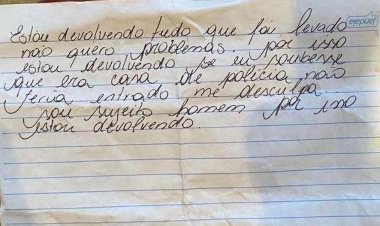 Estou devolvendo tudo que foi levado
não quero problemas. por isso
estou devolvendo se eu soubesse
que era casa de policia não
teria entrado me desculpa...
sou sujeito homem por isso
estou devolvendo.